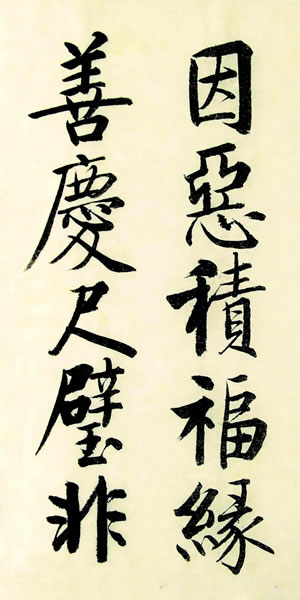 因惡積福緣
善慶尺璧非